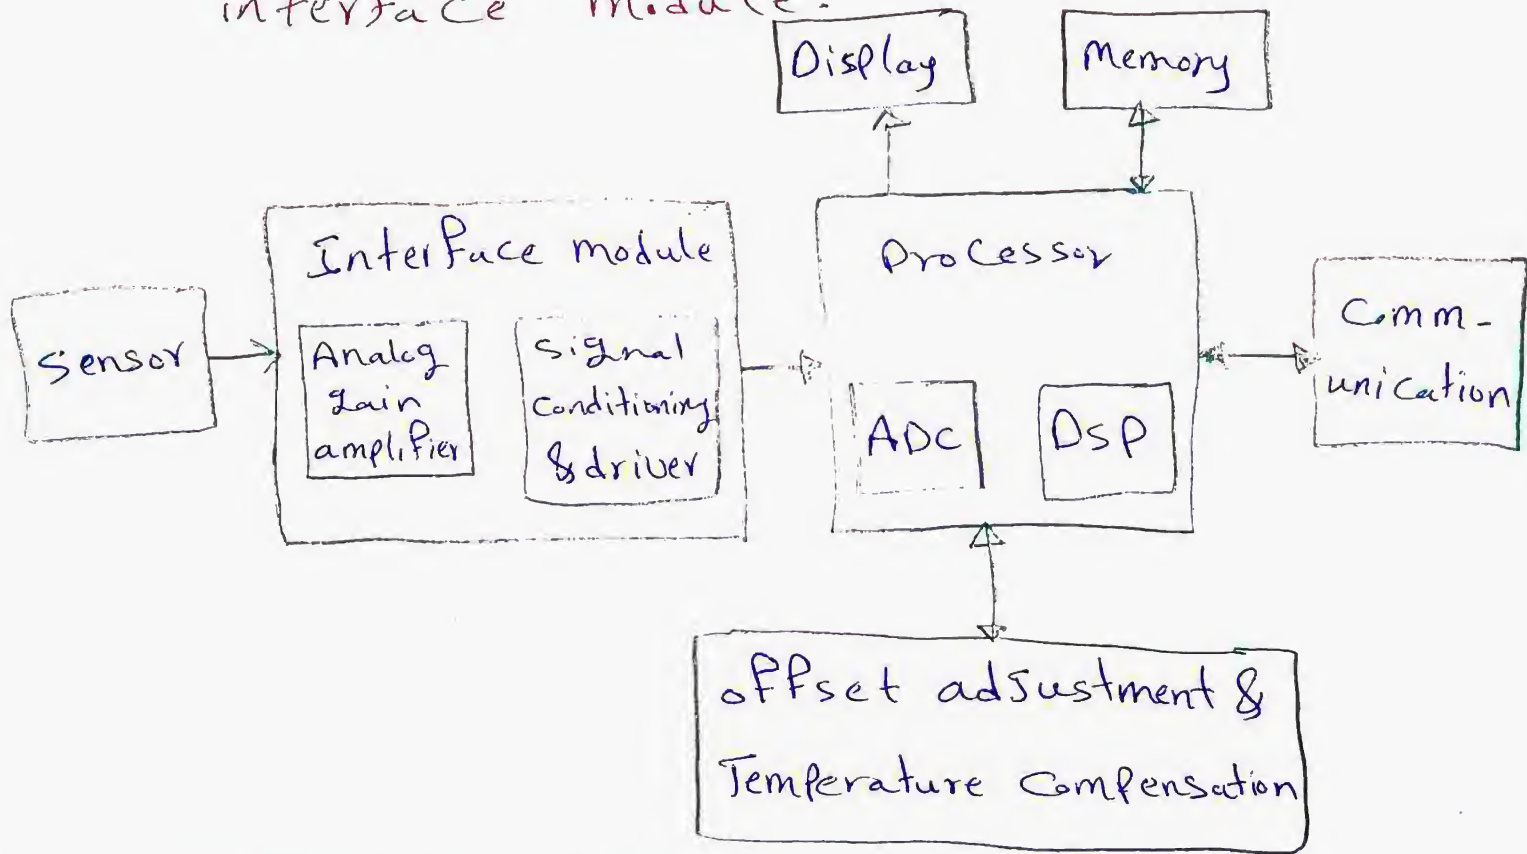 interface module.
Display
Memory
Interface module
Processor
Sensor
Analog
gain
amplifier
Signal
conditioning
& driver
ADC
DSP
Comm-
unication
offset adjustment &
Temperature Compensation